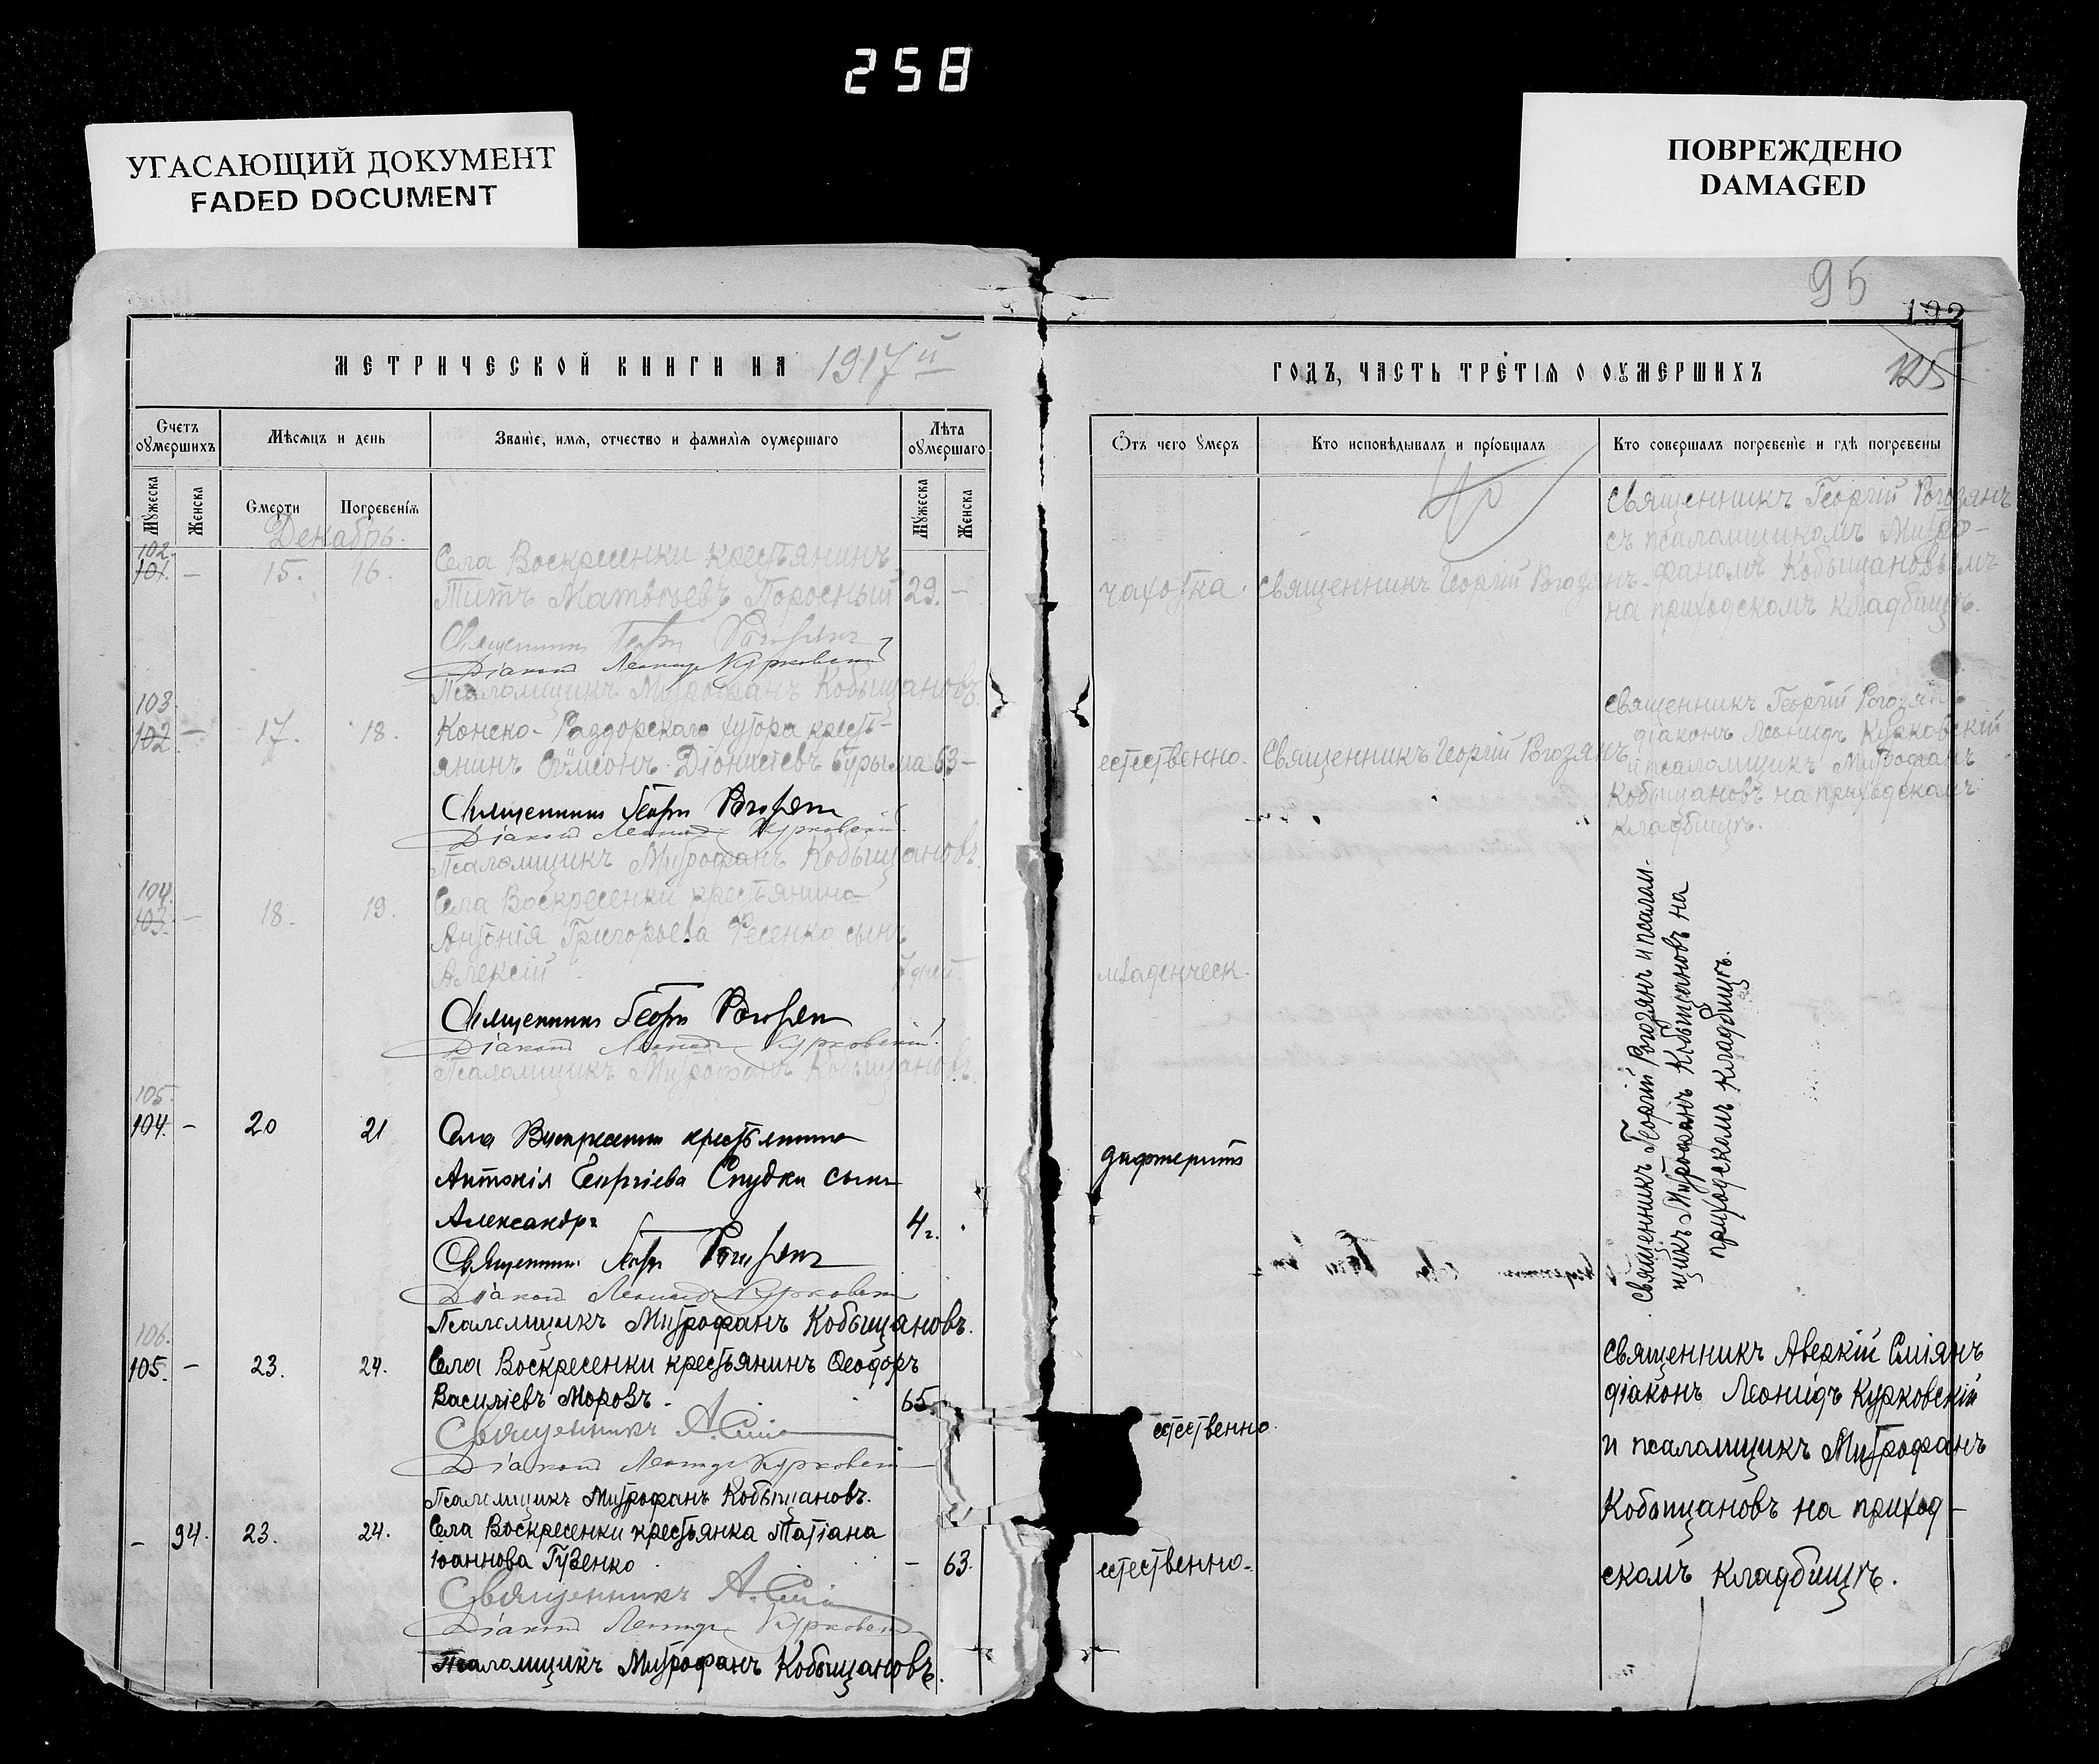 258
УГАСАЮЩИЙ ДОКУМЕНТ
FADED DOCUMENT
ПОВРЕЖДЕНО
DAMAGED
95
192
125
МЕТРИЧЕСКОЙ КНИГИ НА 1917й
ГОДЪ, ЧАСТЬ ТРЕТІѦ О ОУМЕРШИХЪ
Счетъ оумершихъ
Мѣсѧцъ и день
Званіе, имѧ, отчество и фамиліѧ оумершаго
Лѣта оумершаго
Мужеска
Женска
Смерти
Погребеніѧ
Мужеска
Женска
Ѿтъ чего умеръ
Кто исповѣдывалъ и пріобщалъ
Кто совершалъ погребеніе и гдѣ погребены
Декабрь.
102.
101. – 15. 16.
Села Воскресенки крестьянинъ
Титъ Матвѣевъ Поросный 29. –
Священникъ Георгій Рогозянъ
Діаконъ Леонидъ Курковскій
Псаломщикъ Митрофанъ Кобыщановъ
чахотка. Священникъ Георгій Рогозянъ
Священникъ Георгій Рогозянъ
съ псаломщикомъ Митро-
фаномъ Кобыщановымъ
на приходскомъ кладбищѣ.
103
102 – 17. 18.
Конско-Раздорскаго хутора кресть-
янинъ Сѵмеонъ Діонисіевъ Бурыма 63 –
Священникъ Георгій Рогозянъ
Діаконъ Леонидъ Курковскій
Псаломщикъ Митрофанъ Кобыщановъ
естественно. Священникъ Георгій Рогозянъ
Священникъ Георгій Рогозянъ
діаконъ Леонидъ Курковскій
и псаломщикъ Митрофанъ
Кобыщановъ на приходскомъ
кладбищѣ.
104.
103. – 18. 19.
Села Воскресенки крестьянина
Антонія Григорьева Фесенко сынъ
Алексій 7 дней.
Священникъ Георгій Рогозянъ
Діаконъ Леонидъ Курковскій
Псаломщикъ Митрофанъ Кобыщановъ
младенческ.
105.
104. – 20 21
Села Воскресенки крестьянина
Антонія Георгіева Спудки сынъ
Александръ 4 г.
Священникъ Георгій Рогозянъ
Діаконъ Леонидъ Курковскій
Псаломщикъ Митрофанъ Кобыщановъ.
дифтеритъ
Священникъ Георгій Рогозянъ и псалом-
щикъ Митрофанъ Кобыщановъ на
приходскомъ кладбищѣ.
106.
105. – 23. 24.
Села Воскресенки крестьянинъ Ѳеодоръ
Василіевъ Морозъ. 65.
Священникъ А. Сміянъ
Діаконъ Леонидъ Курковскій
Псаломщикъ Митрофанъ Кобыщановъ.
естественно.
– 94. 23. 24.
Села Воскресенки крестьянка Татіана
Іоаннова Гузенко – 63.
Священникъ А. Сміянъ
Діаконъ Леонидъ Курковскій
Псаломщикъ Митрофанъ Кобыщановъ.
естественно.
Священникъ Аверкій Сміянъ
діаконъ Леонидъ Курковскій
и псаломщикъ Митрофанъ
Кобыщановъ на приход-
скомъ кладбищѣ.